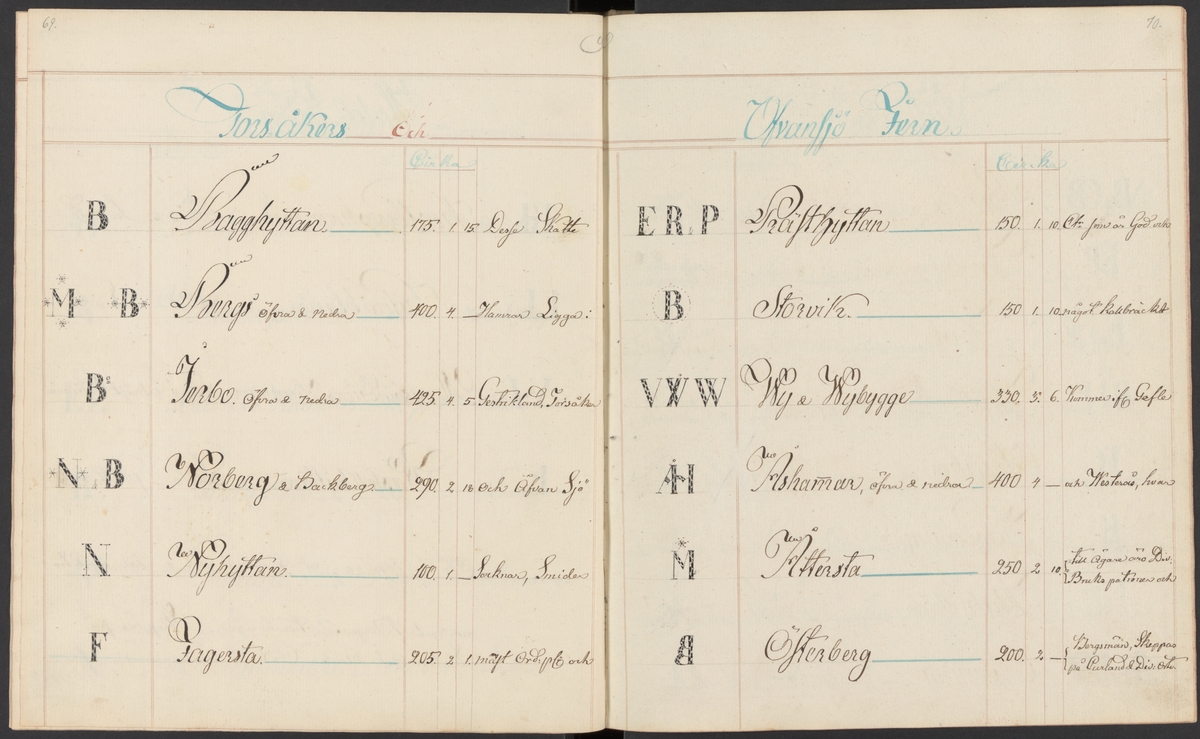 69.
Torsåkers Och
B Bagghyttan 175. 1. 15. Desse Skatte
M B Bergs öfra & Nedra 400. 4. — Hamrar Ligga i
B Jerbo. öfra & Nedra 425. 4. 5 Gestrikland, Torsåker
N B Norberg & Backberg 290. 2 18 Och Äfvan Sjö
N Nyhyttan. 100. 1. — Socknar, Smider
F Fagersta. 205. 2 1. mäst Ord: och
70.
Ofvansjö Jern.
E R. P Prästhyttan 150. 1. 10. som är God och
B Storvik. 150 1. 10. något Kallbräckt
VXW Wij & Wijbygge 330. 3. 6. Kommer Gefle
ÅH Åshamar, öfra & nedra 400 4 — och Westerås, hvar
M Åttersta 250 2 10. till Ägare äro Div:
Bruks patroner och
A Österberg 200. 2 — Bergsmän, Skeppas
på Curland & Div: Orter